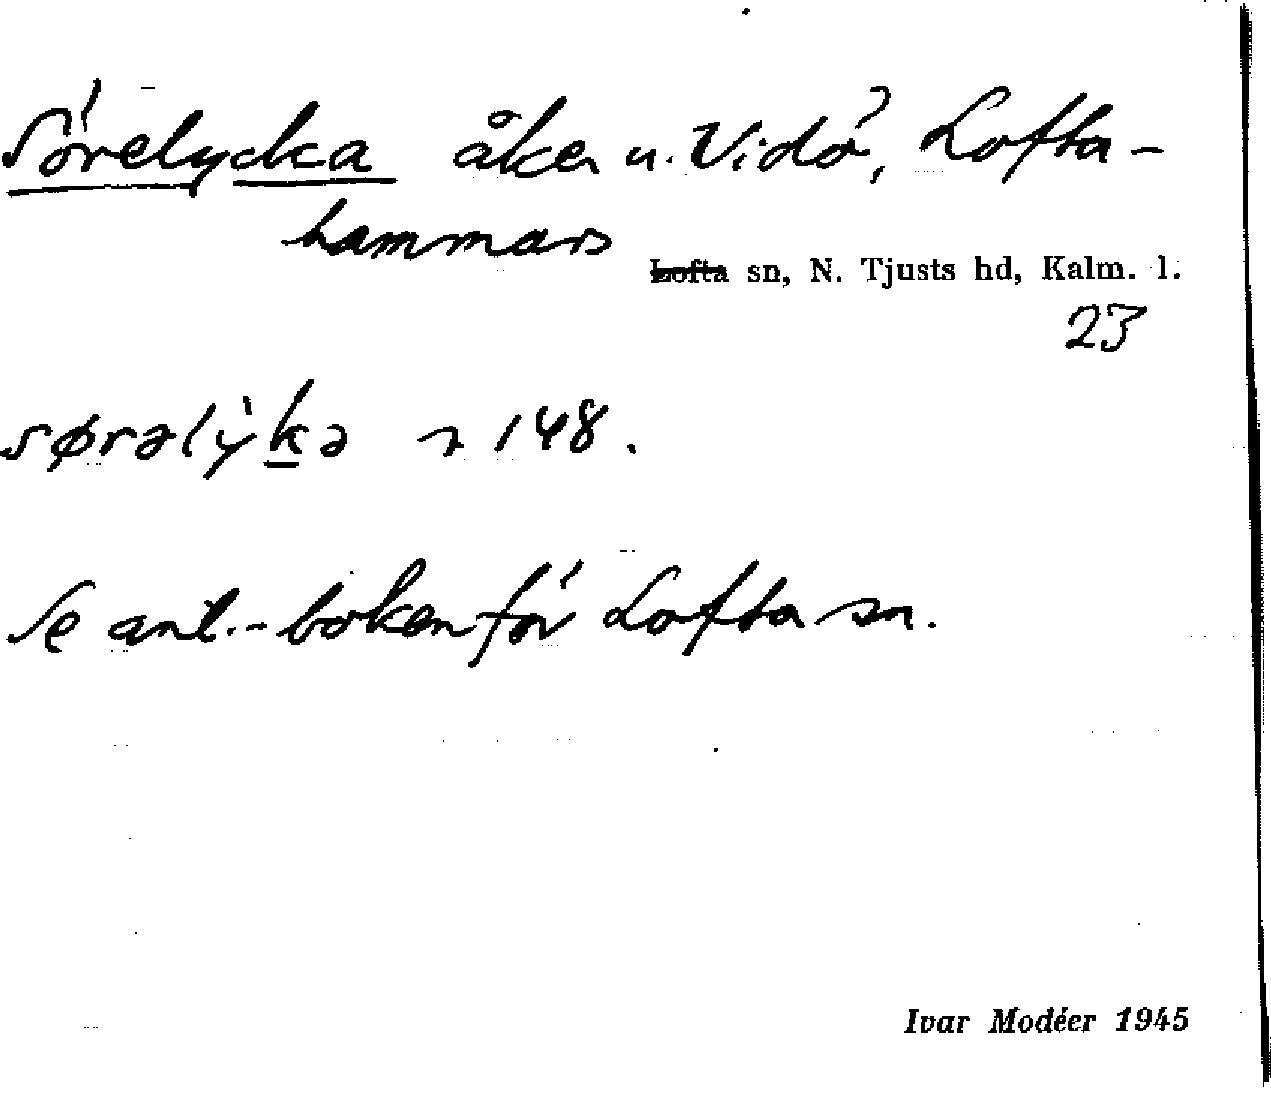 Sörelycka åker u. Vidö, Lofta-
hammars
Lofta sn, N. Tjusts hd, Kalm. l.
23
sørəlỳkə 148.
Se ant.-boken för Lofta sn.
Ivar Modéer 1945